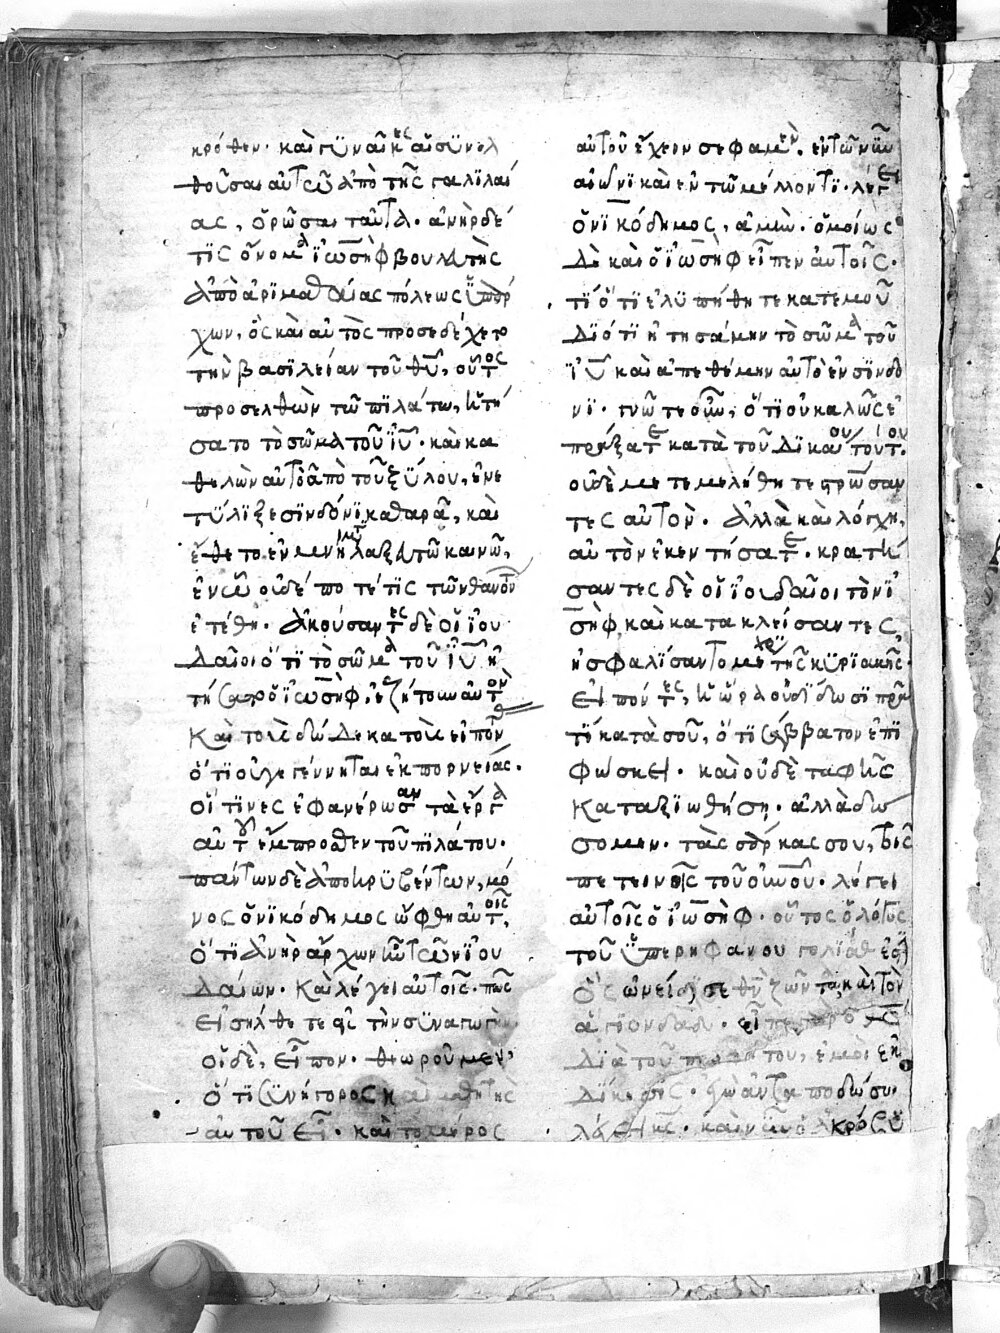 κρόθεν· καὶ γϋναῖκες αἱ σϋνελ
θοῦσαι αὐτῶ ἀπὸ τῆς γαλϊλαί
ας, ὁρῶσαι ταῦτα· ἀνὴρ δέ
τϊς ὀνόμα ϊωσὴφ βουλευτὴς
ἀπὸ ἀρϊμαθαίας πόλεως ὑπάρ
χων, ὃς καὶ αὐτὸς προσεδέχετο
τὴν βασϊλείαν τοῦ θυ, οὗτος
προσελθὼν τῶ πϊλάτω, ἠτή
σατο τὸ σῶμα τοῦ ιυ· καὶ κα
θελὼν αὐτὸ ἀπὸ τοῦ ξϋλου, ἐνε
τϋλϊξε σϊνδόνϊ καθαρᾶ, καὶ
ἔθετο ἐν μνημ λαξευτῶ καινῶ,
ἐν ῶ οὐδέπο τέ τϊς τῶν θανόντ
ἐτέθη· ἀκούσαντες δὲ οἱ ϊου
δαῖοι ὅτϊ τὸ σῶμα τοῦ ιυ ἠ
τήσατο ὁ ϊωσὴφ, ἐζήτουν αὐτὸν
καὶ τοὺς δώδεκα τοὺς εἰπόν
ὅτϊ οὐ γεγέννηται ἐκ πορνείας·
οἵτϊνες ἐφανέρωσαν τὰ ἔργα
αὐτοῦ ἔμπροσθεν τοῦ πϊλάτου·
πάντων δὲ ἀποκρϋβέντων, μό
νος ὁ νϊκόδημος ὤφθη αὐτοῖς,
ὅτϊ ἀνὴρ ἄρχων ἦν τῶν ϊου
δαίων· καὶ λέγει αὐτοῖς· πῶς
εἰσήλθετε εἰς τὴν σϋναγωγὴν
οἱ δὲ, εἶπον· θεωροῦμεν,
ὅτϊ σϋνήγορος καὶ μαθητὴς
αὐτοῦ εἶ· καὶ τὸ μέρος
αὐτοῦ ἔχειν σε φαμὲν· ἐν τῶ νῦν
αἰῶνϊ καὶ ἐν τῶ μέλλοντϊ· λέγει
ὁ νϊκόδημος, ἀμὴν· ὁμοίως
δὲ καὶ ὁ ϊωσὴφ εἶπεν αὐτοῖς·
τϊ ὅτϊ ἐλϋπήθητε κατ ἐμοῦ
δϊότϊ ἠτησάμην τὸ σῶμα τοῦ
ιυ καὶ ἀπεθέμην αὐτὸ ἐν σϊνδο
νϊ· γνῶτε οὖν, ὅτϊ οὐ καλῶς ἐ
πράξατε κατὰ τοῦ δϊκαίου τούτου.
οὐδὲ μετεμελήθητε σταυρώσαν
τες αὐτὸν· ἀλλὰ καὶ λόγχη,
αὐτὸν ἐκεντήσατε· κρατή
σαντες δὲ οἱ ϊουδαῖοι τὸν ϊω
σὴφ, καὶ κατακλείσαντες,
ἠσφαλίσαντο μέχρϊ τῆς κϋρϊακῆς·
εἰπόντες, ἡ ὥρα οὐ δϊδωσϊ πρᾶξαί
τϊ κατὰ σοῦ, ὅτϊ σάββατον ἐπϊ
φώσκει· καὶ οὐδὲ ταφῆς
καταξϊωθήση· ἀλλὰ δώ
σομεν· τὰς σάρκας σου, τοῖς
πετεινοῖς τοῦ οὐνου· λέγει
αὐτοῖς ὁ ϊωσὴφ· οὗτος ὁ λόγος
τοῦ ὑπερηφάνου γολϊάθ ἐστὶ
ὃς ὠνείδϊσε θν ζῶντα, καὶ τὸν
ἅγϊον δαδ·
δϊὰ τοῦ προφήτου, ἐμοὶ ἐκ
δίκησϊς· ἐγὼ ἀνταποδώσω·
λέγει κς· καὶ νῦν ὁ ἀκρόβϋ